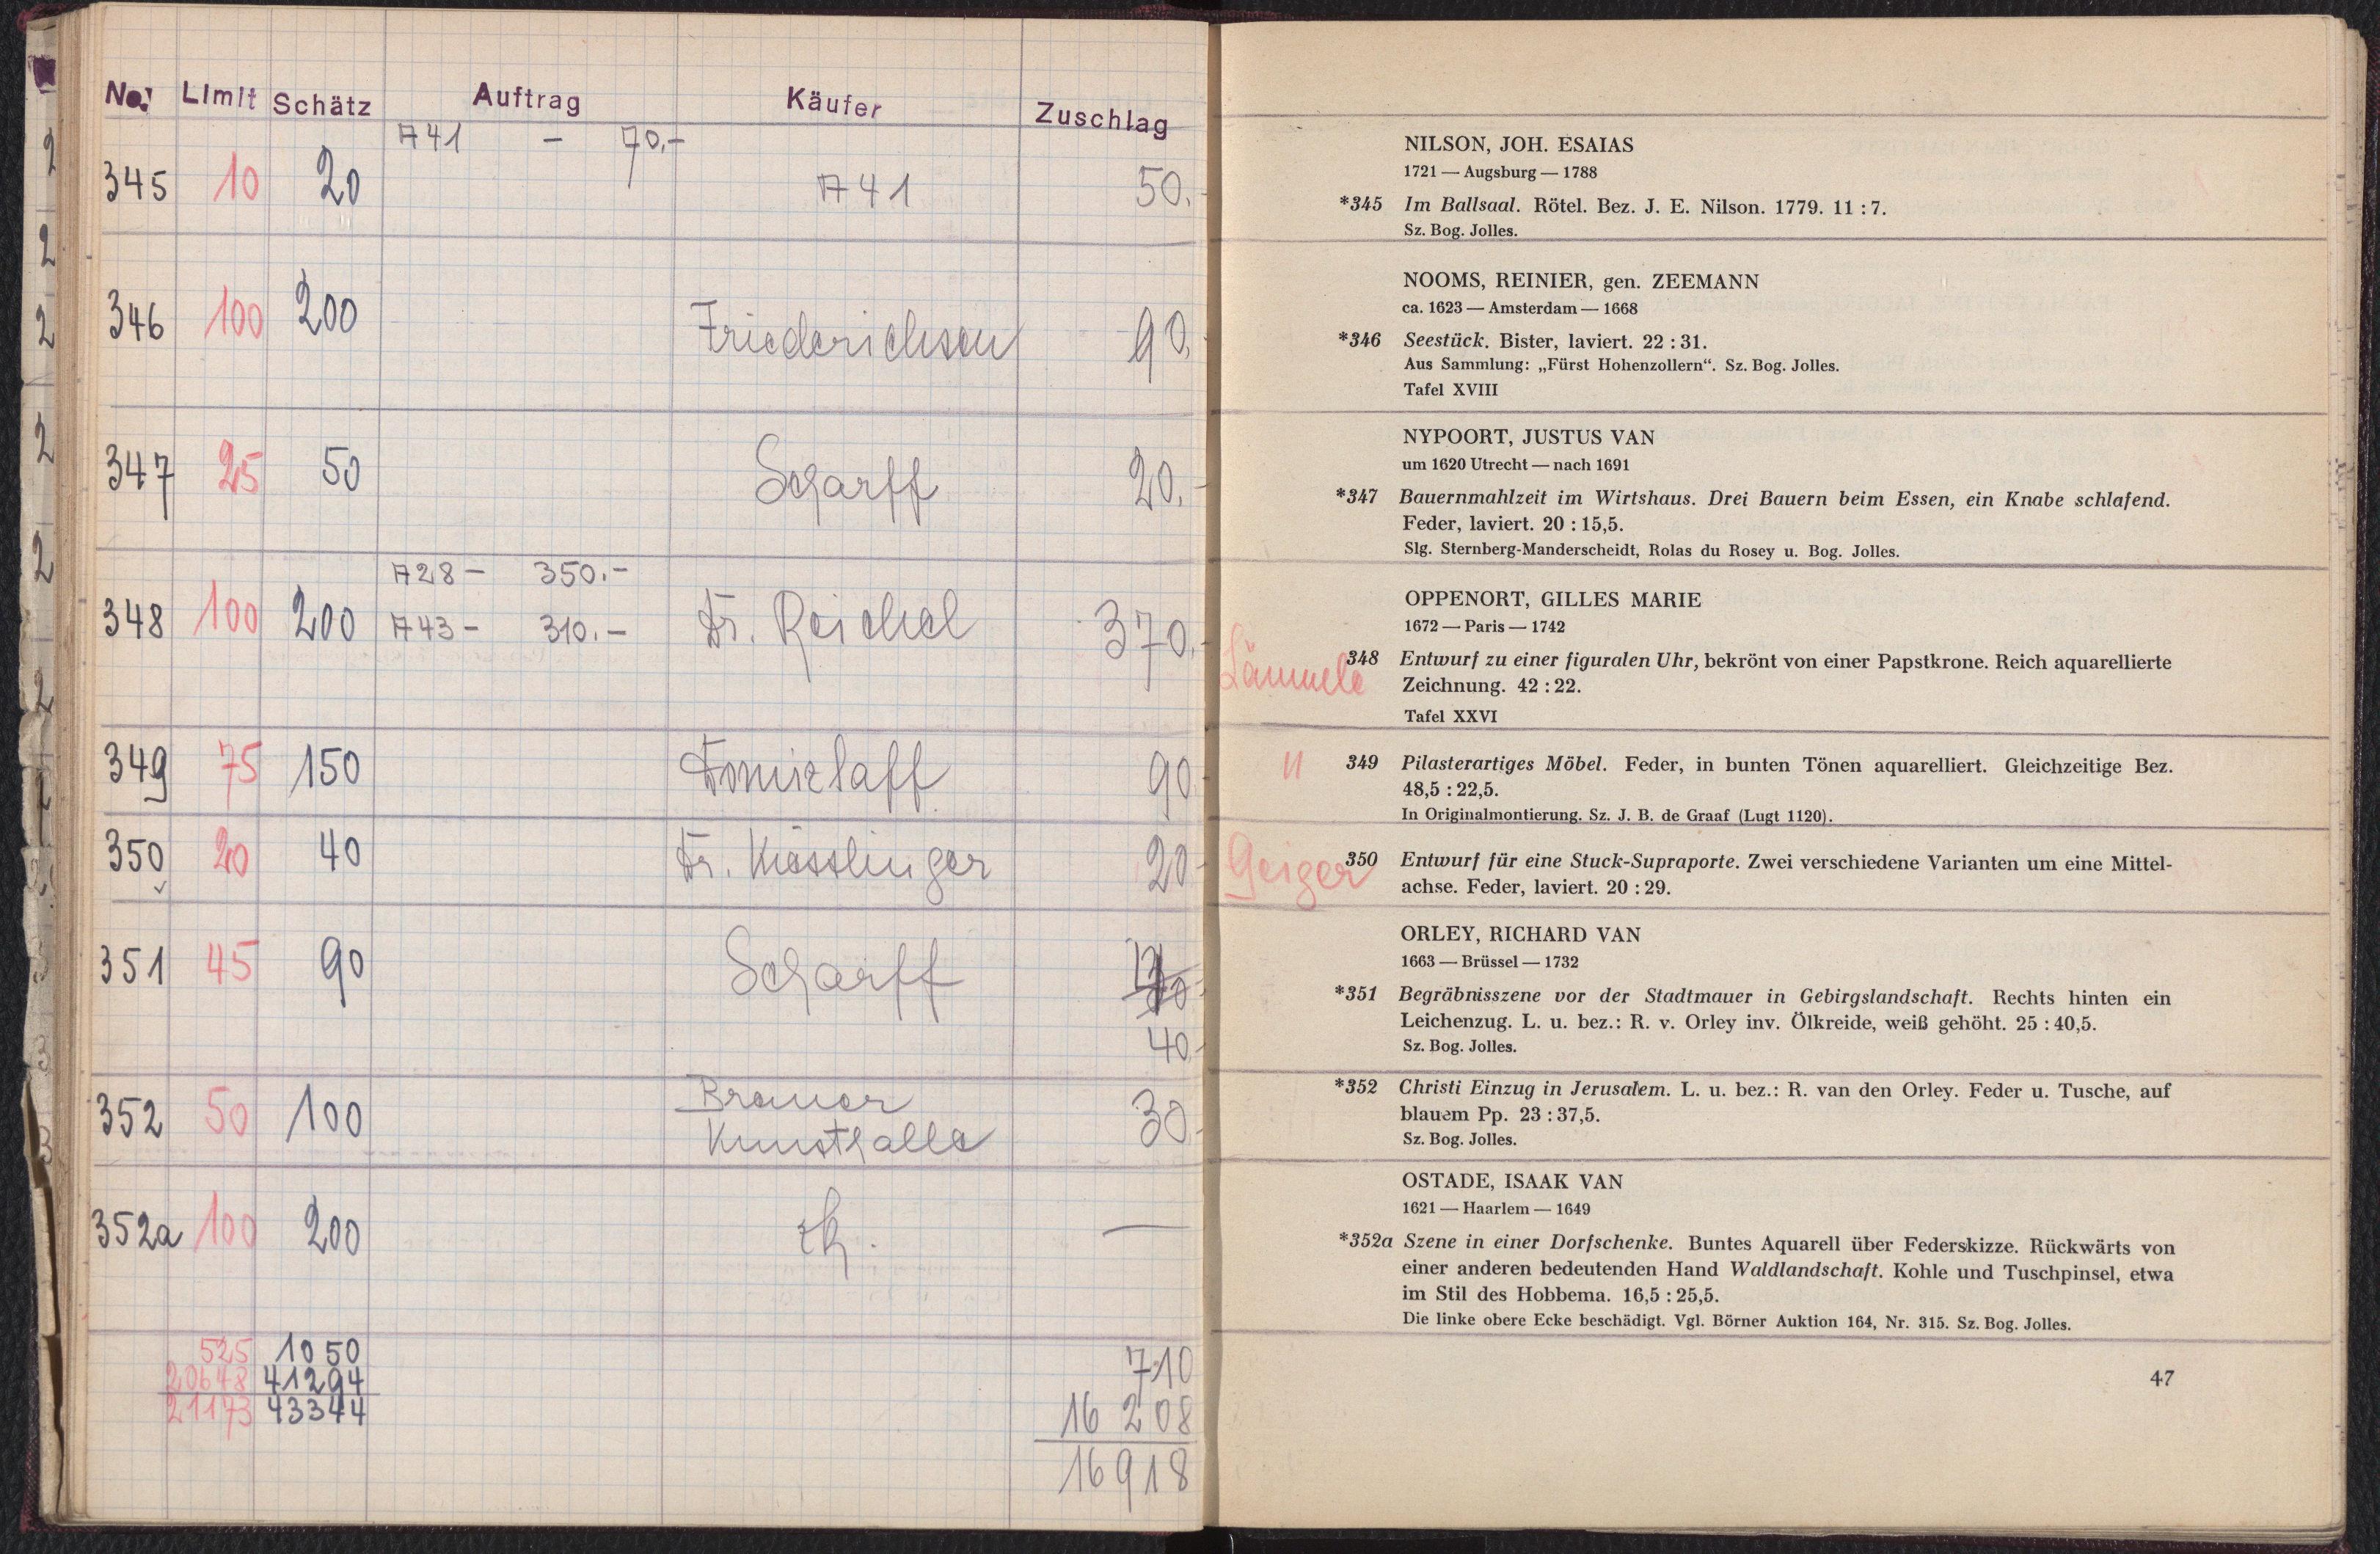 No. Limit Schätz Auftrag Käufer Zuschlag
A 41 - 70.-
345 10 20 A 41 50.-
346 100 200 Friederichsen 90.-
347 25 50 Scharff 20.-
A 28 - 350.-
348 100 200 A 43 - 310.- Dr. Reichel 370.-
349 75 150 Domizlaff 90.-
350 20 40 Dr. Kiesslinger 20.-
351 45 90 Scharff
40.-
352 50 100 Bremer Kunsthalle 30.-
352a 100 200 zk. —
525 1050 710
20648 41294 16 208
21173 43344 16918
NILSON, JOH. ESAIAS
1721 — Augsburg — 1788
*345 Im Ballsaal. Rötel. Bez. J. E. Nilson. 1779. 11 : 7.
Sz. Bog. Jolles.
NOOMS, REINIER, gen. ZEEMANN
ca. 1623 — Amsterdam — 1668
*346 Seestück. Bister, laviert. 22 : 31.
Aus Sammlung: „Fürst Hohenzollern“. Sz. Bog. Jolles.
Tafel XVIII
NYPOORT, JUSTUS VAN
um 1620 Utrecht — nach 1691
*347 Bauernmahlzeit im Wirtshaus. Drei Bauern beim Essen, ein Knabe schlafend.
Feder, laviert. 20 : 15,5.
Slg. Sternberg-Manderscheidt, Rolas du Rosey u. Bog. Jolles.
OPPENORT, GILLES MARIE
1672 — Paris — 1742
348 Entwurf zu einer figuralen Uhr, bekrönt von einer Papstkrone. Reich aquarellierte
Lämmle Zeichnung. 42 : 22.
Tafel XXVI
" 349 Pilasterartiges Möbel. Feder, in bunten Tönen aquarelliert. Gleichzeitige Bez.
48,5 : 22,5.
In Originalmontierung. Sz. J. B. de Graaf (Lugt 1120).
Geiger 350 Entwurf für eine Stuck-Supraporte. Zwei verschiedene Varianten um eine Mittel-
achse. Feder, laviert. 20 : 29.
ORLEY, RICHARD VAN
1663 — Brüssel — 1732
*351 Begräbnisszene vor der Stadtmauer in Gebirgslandschaft. Rechts hinten ein
Leichenzug. L. u. bez.: R. v. Orley inv. Ölkreide, weiß gehöht. 25 : 40,5.
Sz. Bog. Jolles.
*352 Christi Einzug in Jerusalem. L. u. bez.: R. van den Orley. Feder u. Tusche, auf
blauem Pp. 23 : 37,5.
Sz. Bog. Jolles.
OSTADE, ISAAK VAN
1621 — Haarlem — 1649
*352a Szene in einer Dorfschenke. Buntes Aquarell über Federskizze. Rückwärts von
einer anderen bedeutenden Hand Waldlandschaft. Kohle und Tuschpinsel, etwa
im Stil des Hobbema. 16,5 : 25,5.
Die linke obere Ecke beschädigt. Vgl. Börner Auktion 164, Nr. 315. Sz. Bog. Jolles.
47